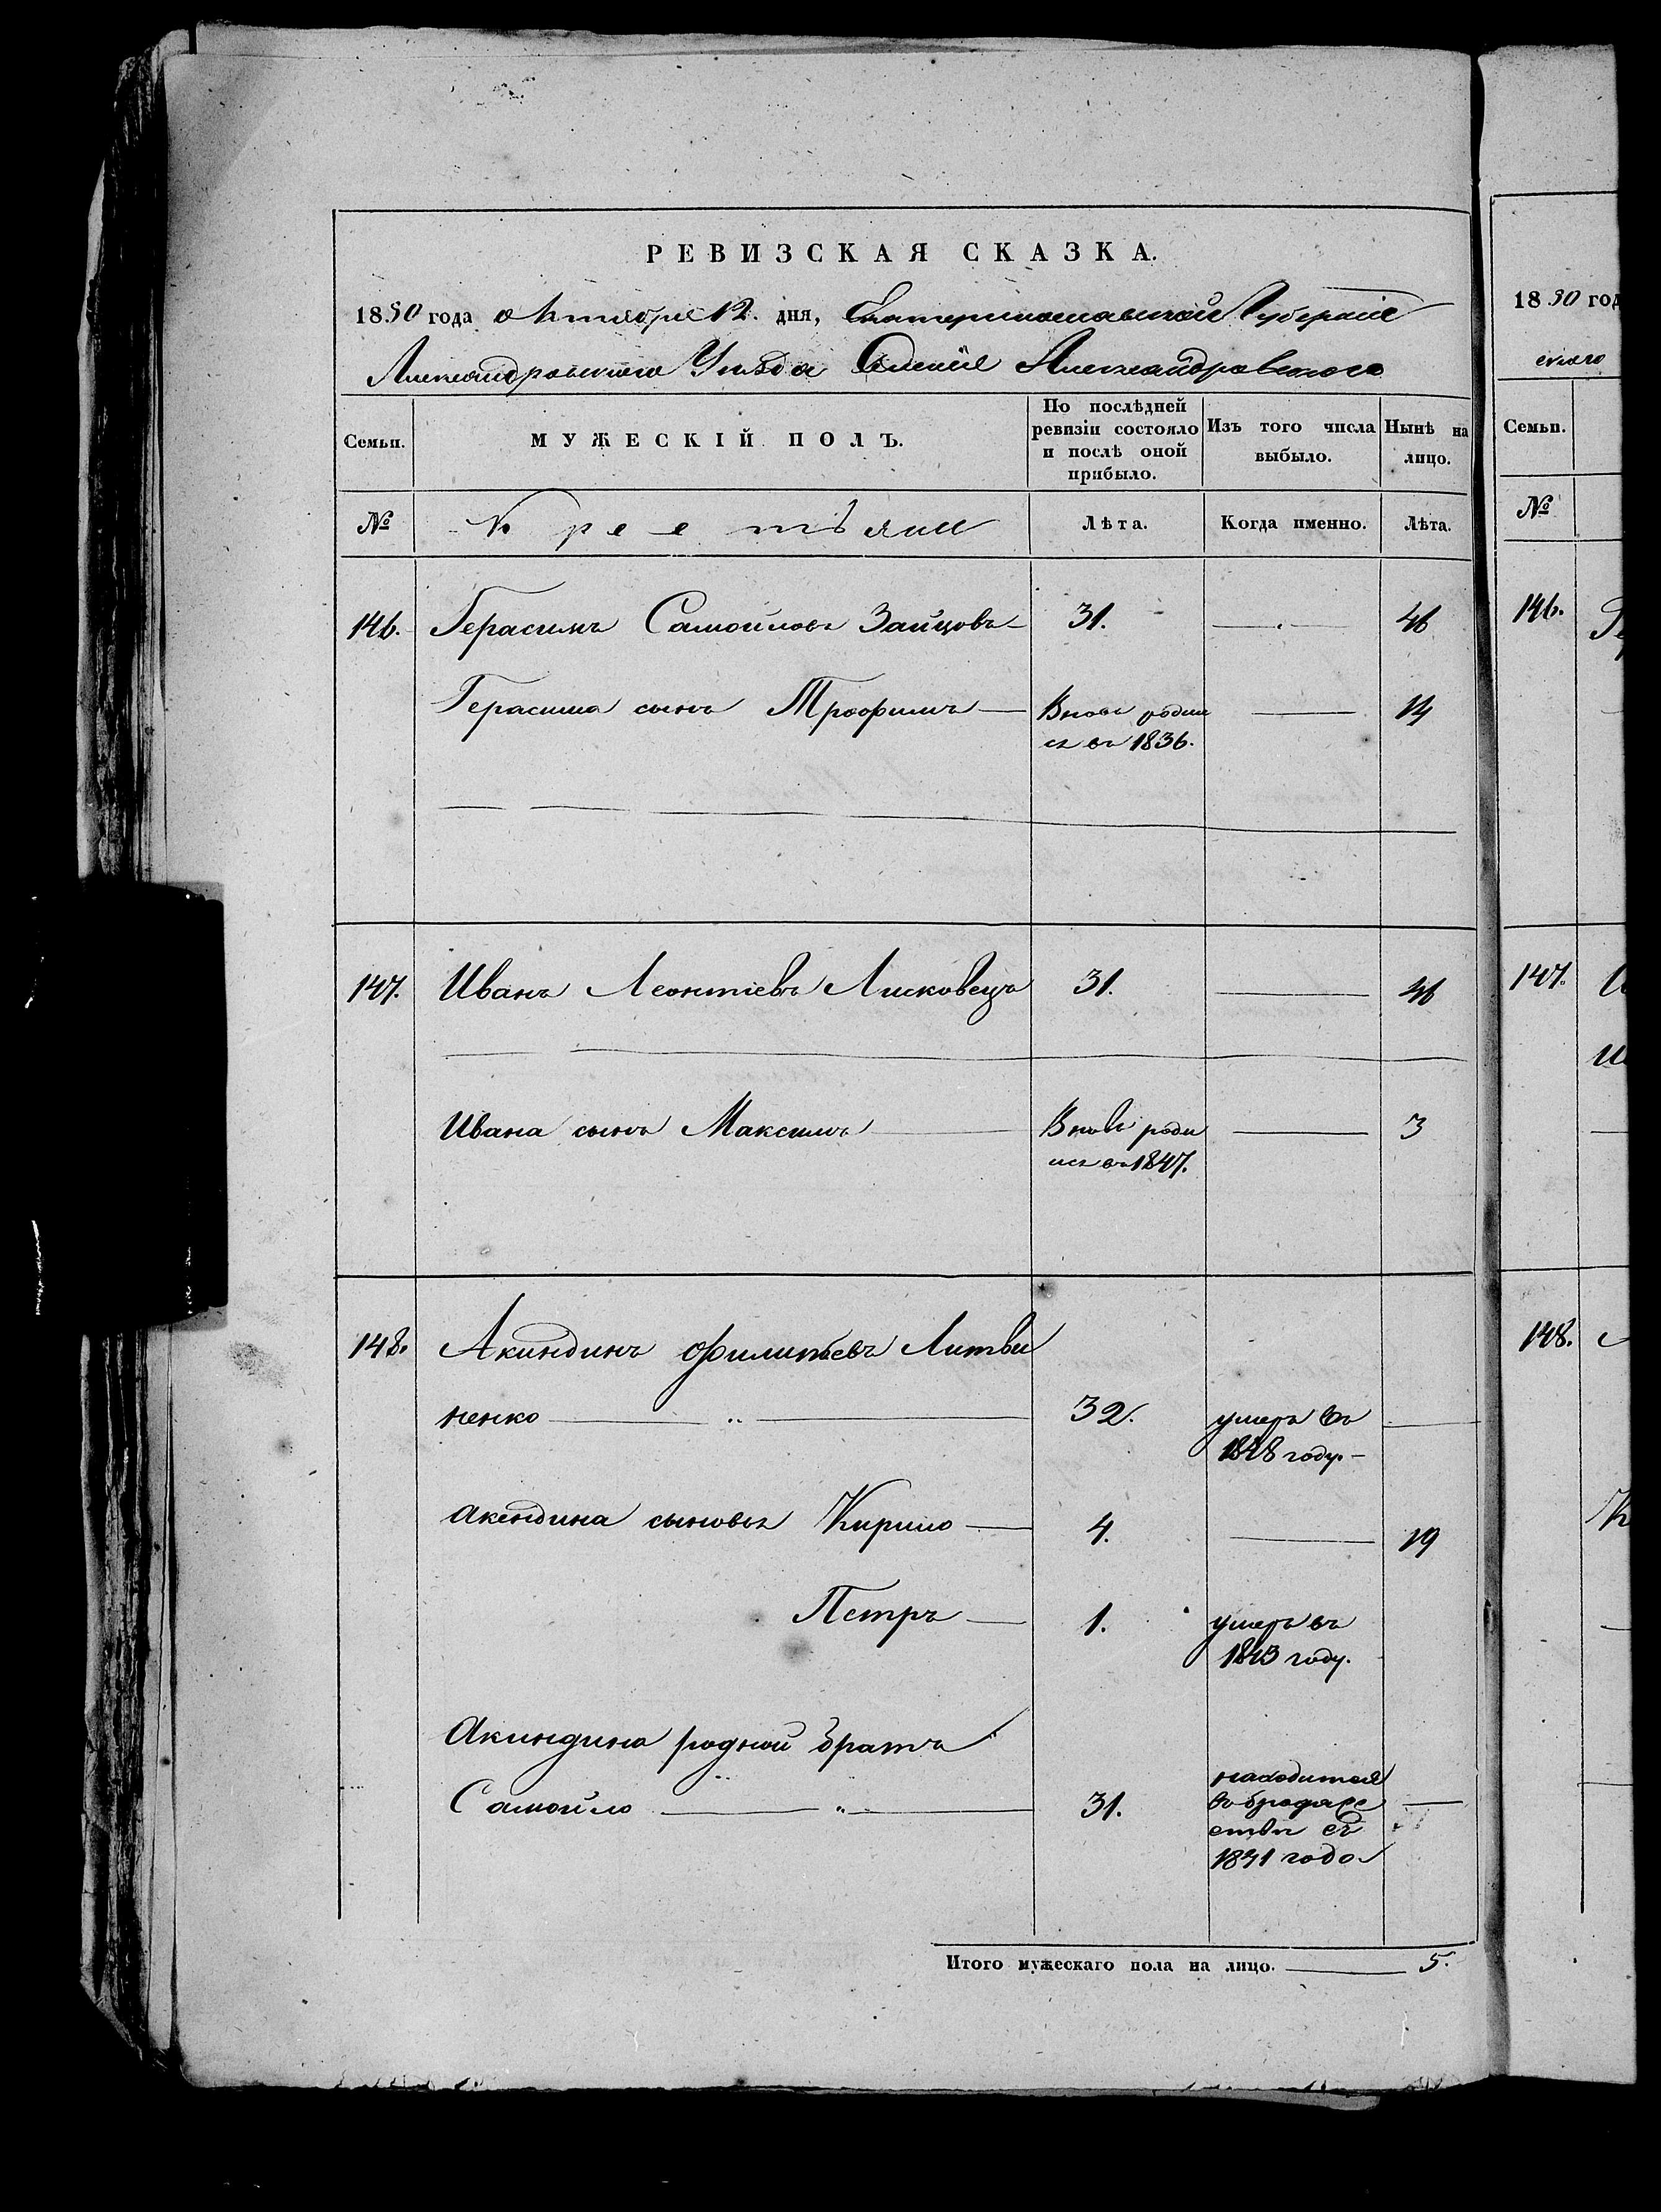 РЕВИЗСКАЯ СКАЗКА.
1850 года октября 12. дня, Екатеринославской Губернии
Александровского Уезда Селения Александровского
Семьи.
МУЖЕСКІЙ ПОЛЪ.
По послѣдней ревизіи состояло и послѣ оной прибыло.
Изъ того числа выбыло.
Нынѣ на лицо.
№ Крестьяни Лѣта. Когда именно. Лѣта.
146. Герасимъ Самойловъ Зайцовъ 31. 46
Герасима сынъ Трофимъ Вновь родил 14
ся въ 1836.
147. Иванъ Леонтіевъ Лисковецъ 31. 46
Ивана сынъ Максимъ Вновь роди 3
лся въ 1847.
148. Акиндинъ Филипьевъ Литви
ненко 32. умеръ въ
1848 году.
Акендина сыновья Кирило 4. 19
Петръ 1. умеръ въ
1843 году.
Акиндина родной братъ
Самойло 31. находится
во бродяже
стви съ
1841 года
Итого мужескаго пола на лицо. 5.
1850 год
ского
Семьи.
№
146.
147.
148.